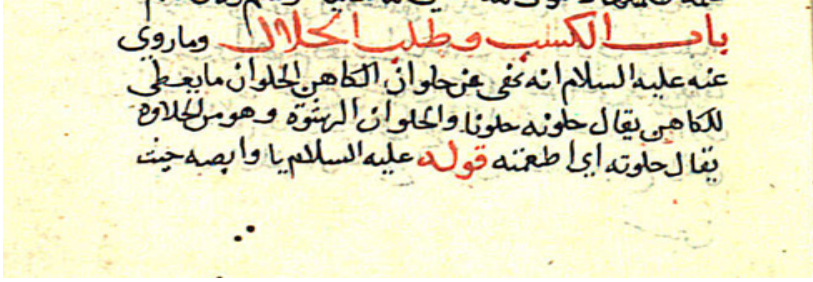 باب الكسب وطلب الحلال وما روي
عنه عليه السلام انه نهى عن حلوان الكاهن الحلوان ما يعطى
للكاهن يقال حلوته حلونا والحلوان الرشوة وهو من الحلاوة
يقال حلوته اي اطعمته قوله عليه السلام يا وابصة جيت